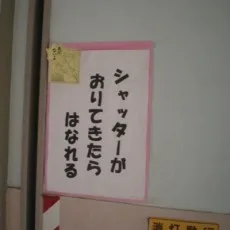 シャッターが
おりてきたら
はなれる